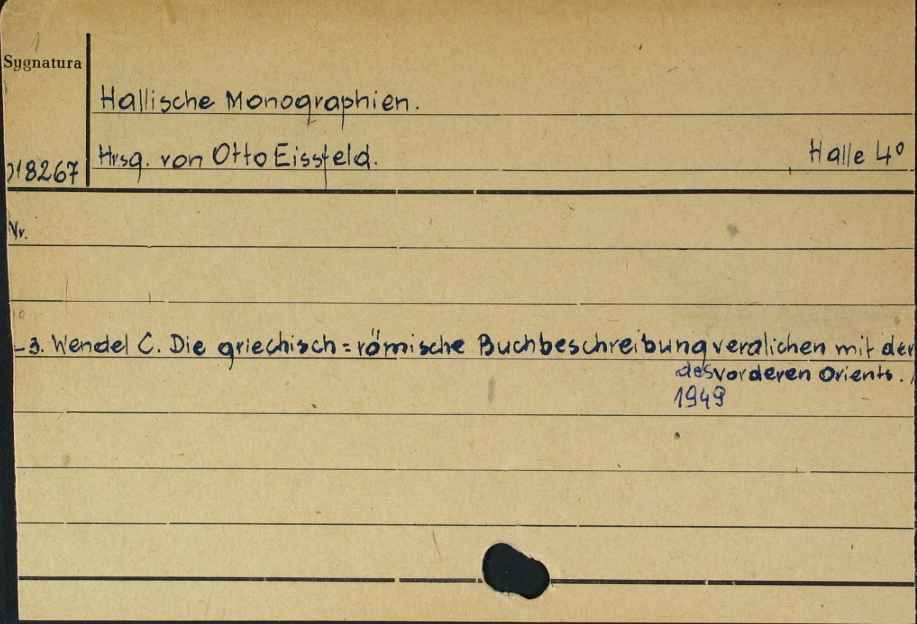 Sygnatura
Hallische Monographien.
018267 Hrsg. von Otto Eissfeld. Halle 4°
Nr.
3. Wendel C. Die griechisch=römische Buchbeschreibung veralichen mit der
des vorderen Orients.
1949